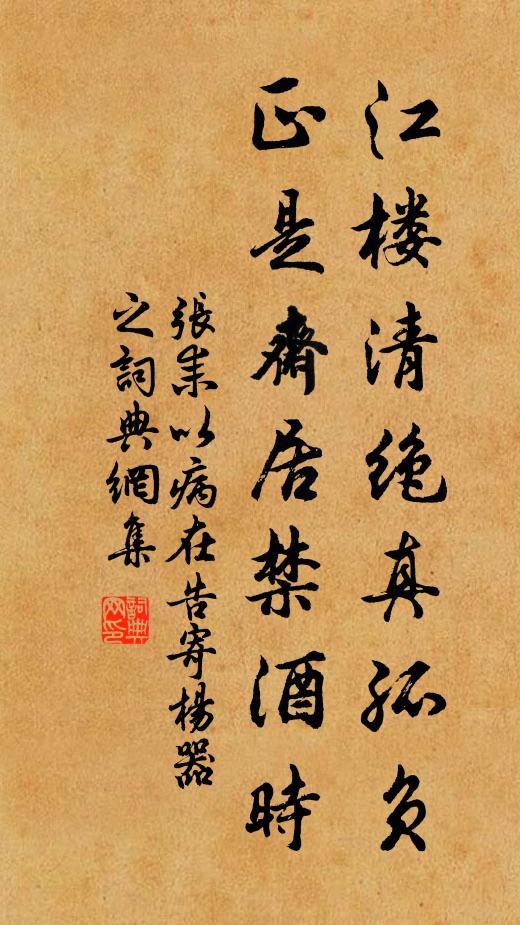 江楼清绝真孤负
正是斋居禁酒时
張耒以病在告寄楊器
之詞典網集
詞典
网印